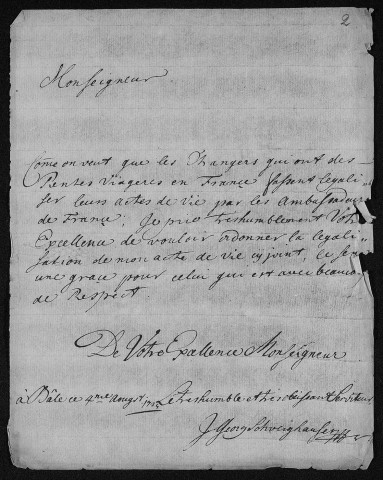 2
Monseigneur
Come on veut que les Etrangers qui ont des
Rentes Viageres en France fassent legali
ser leurs actes de vie par les Ambassadeurs
de France. Je prie treshumblement Votre
Excellence de vouloir ordonner la legali
sation de mon acte de vie cy joint, ce sera
une grace pour celui qui est avec beaucoup
de Respect.
De Votre Excellence Monseigneur
à Bâle ce 4me Augst Le treshumble et tres obeissant Serviteur
J Georg Schweighauser